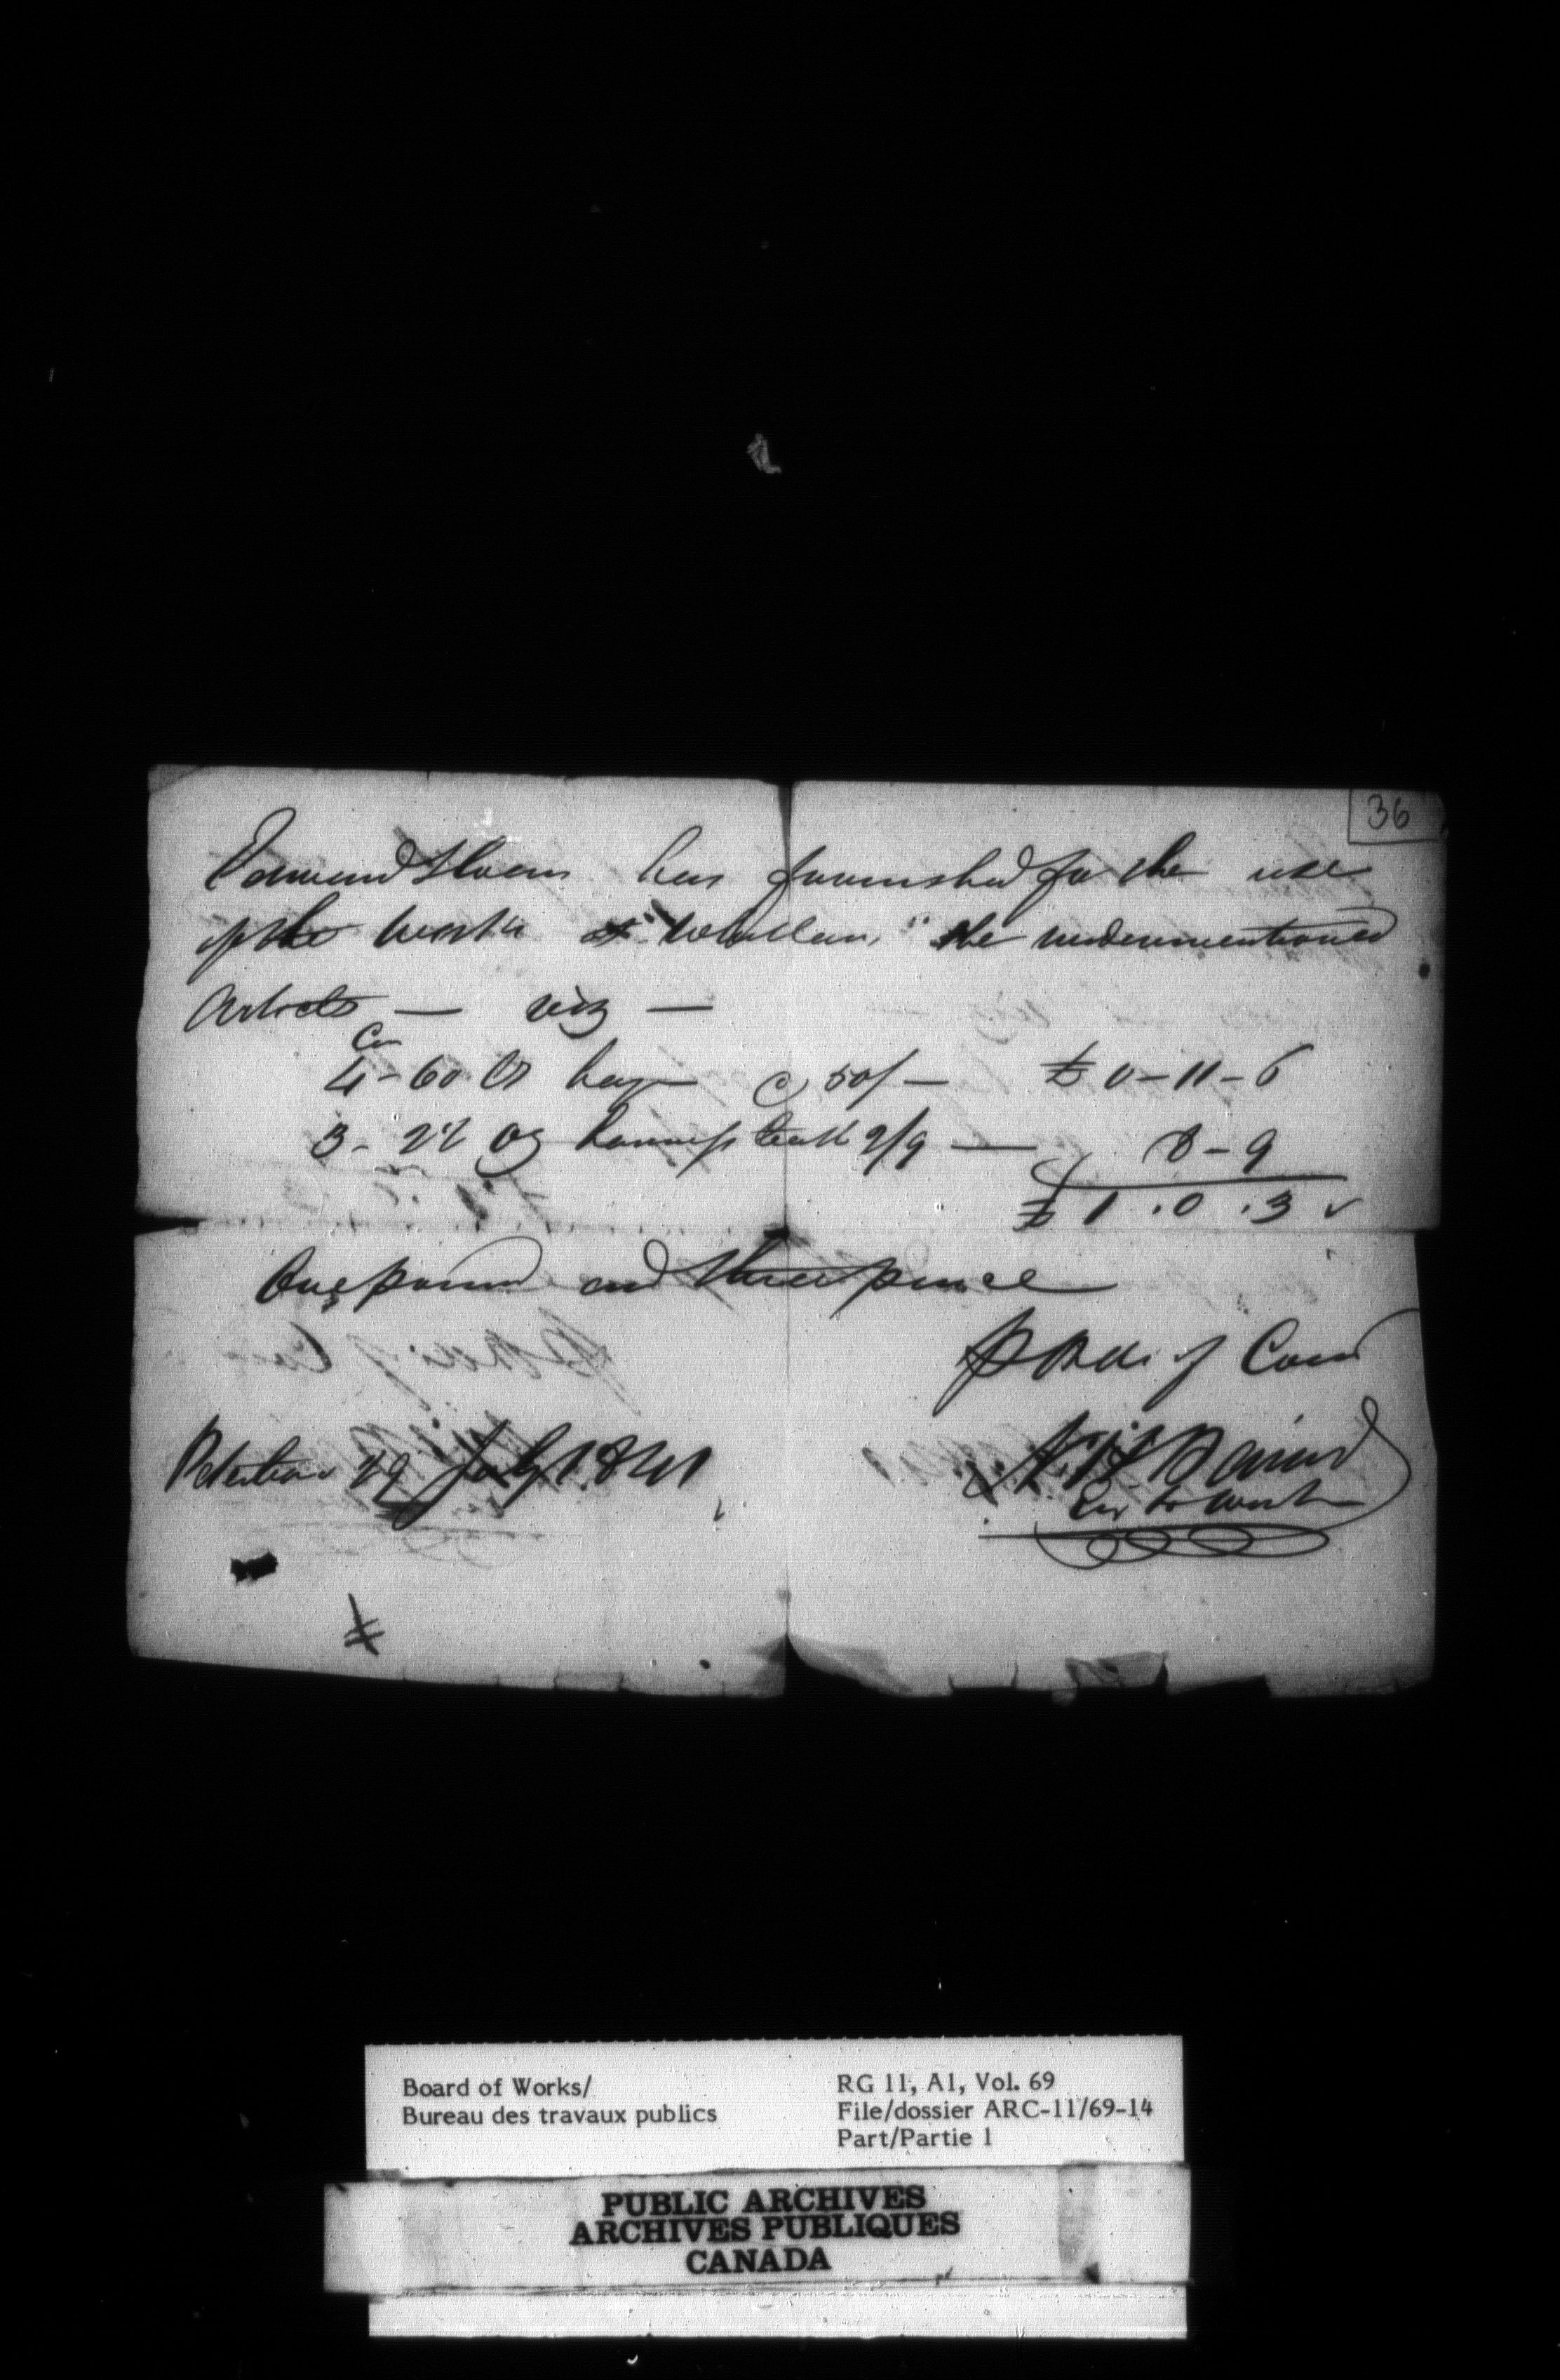 36
Edmund has furnished for the use
of the works at "Whitlaw," the undermentioned
Articles — viz —
Cw
4 - 60 lb hay @ 50/— £ 0-11-6
3 - 22 2/9 — 8-9
£ 1.0.3
One pound and three pence
Peterboro 29 July 1841
N H Baird
Eng to Works
Board of Works/
Bureau des travaux publics
RG 11, A1, Vol. 69
File/dossier ARC-11/69-14
Part/Partie 1
PUBLIC ARCHIVES
ARCHIVES PUBLIQUES
CANADA